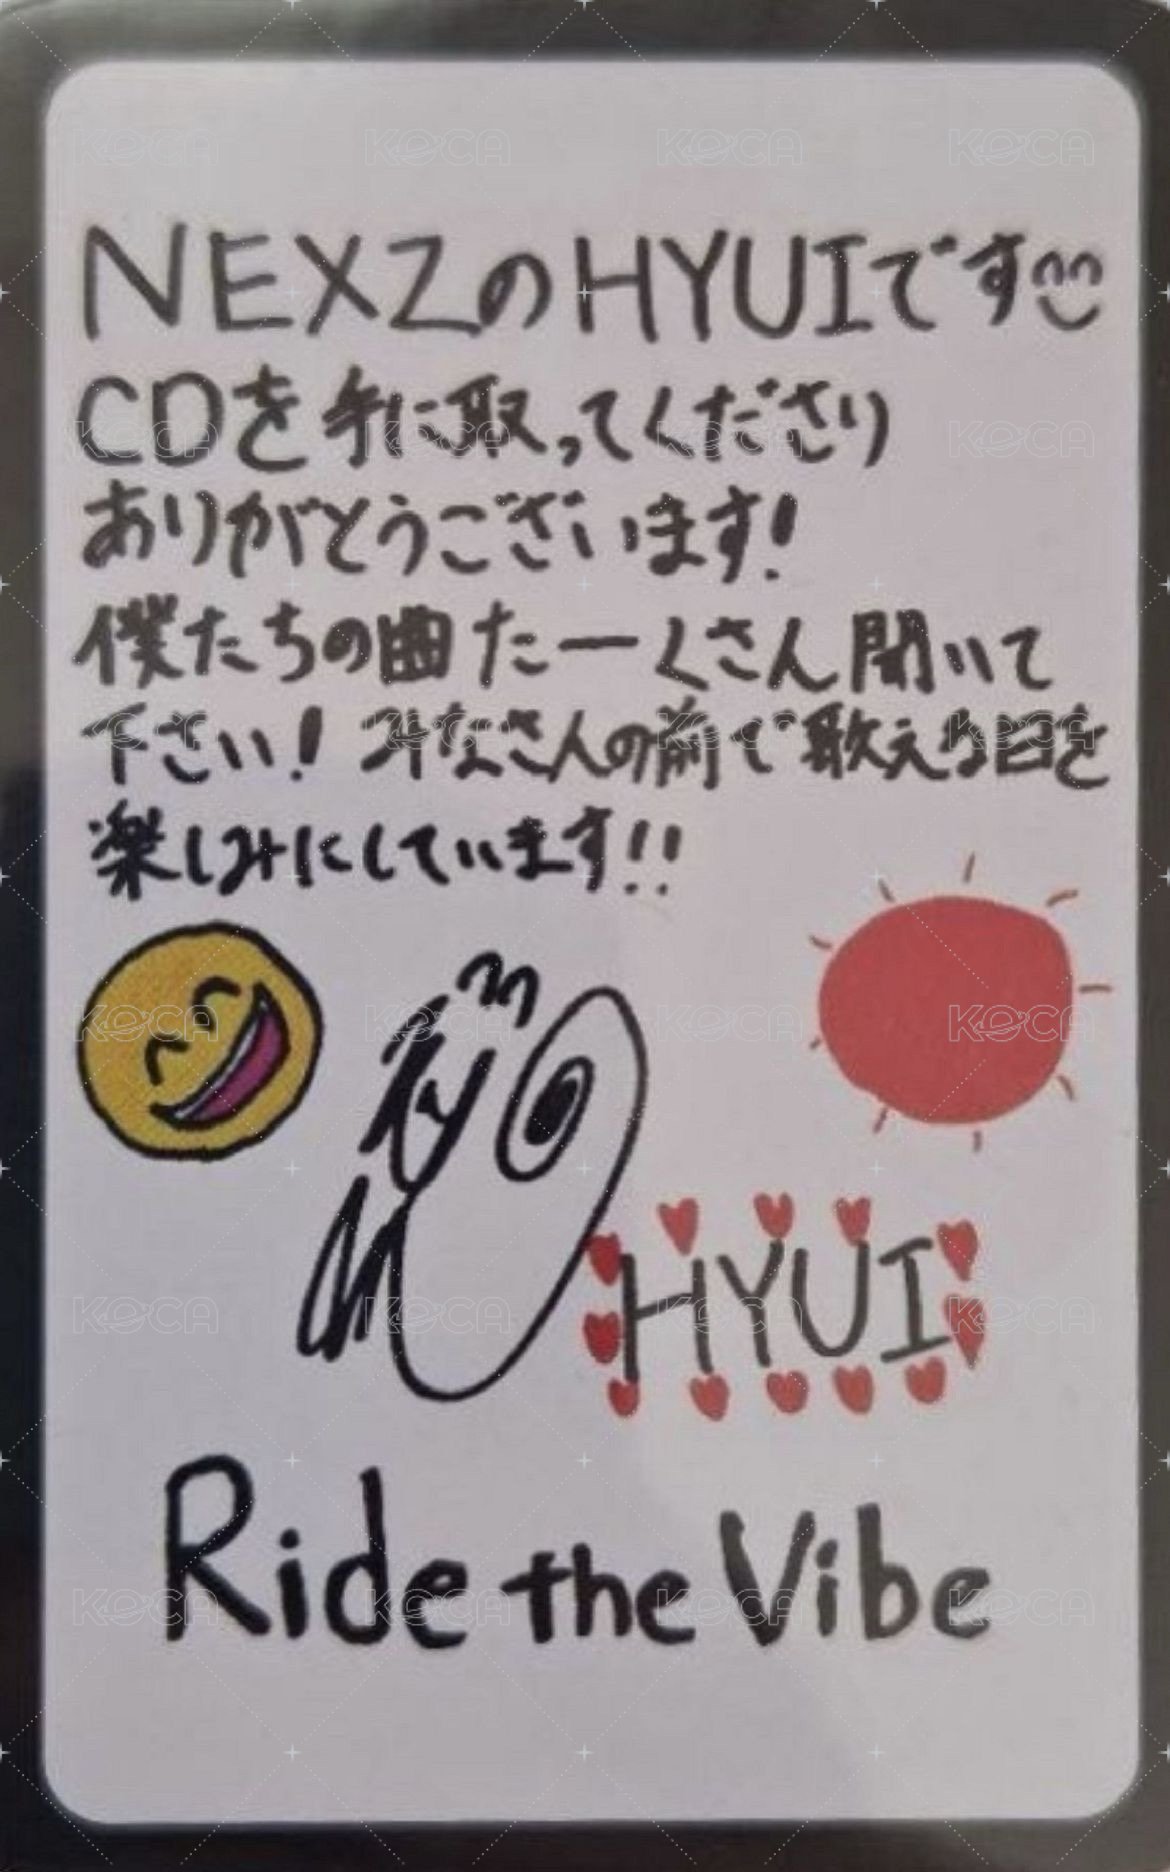 NEXZのHYUIです
CDを手に取ってくださり
ありがとうございます!
僕たちの曲たーくさん聞いて
下さい! みなさんの前で歌える日を
楽しみにしています!!
HYUI
Ride the Vibe
KOCA